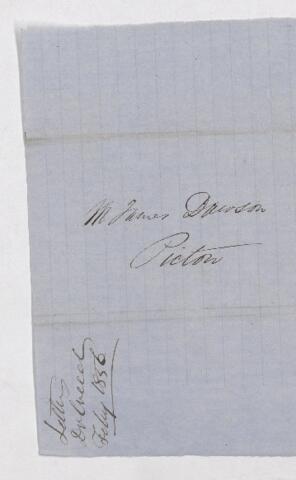 Mr James Dawson
Picton
Letter
Feby 1856